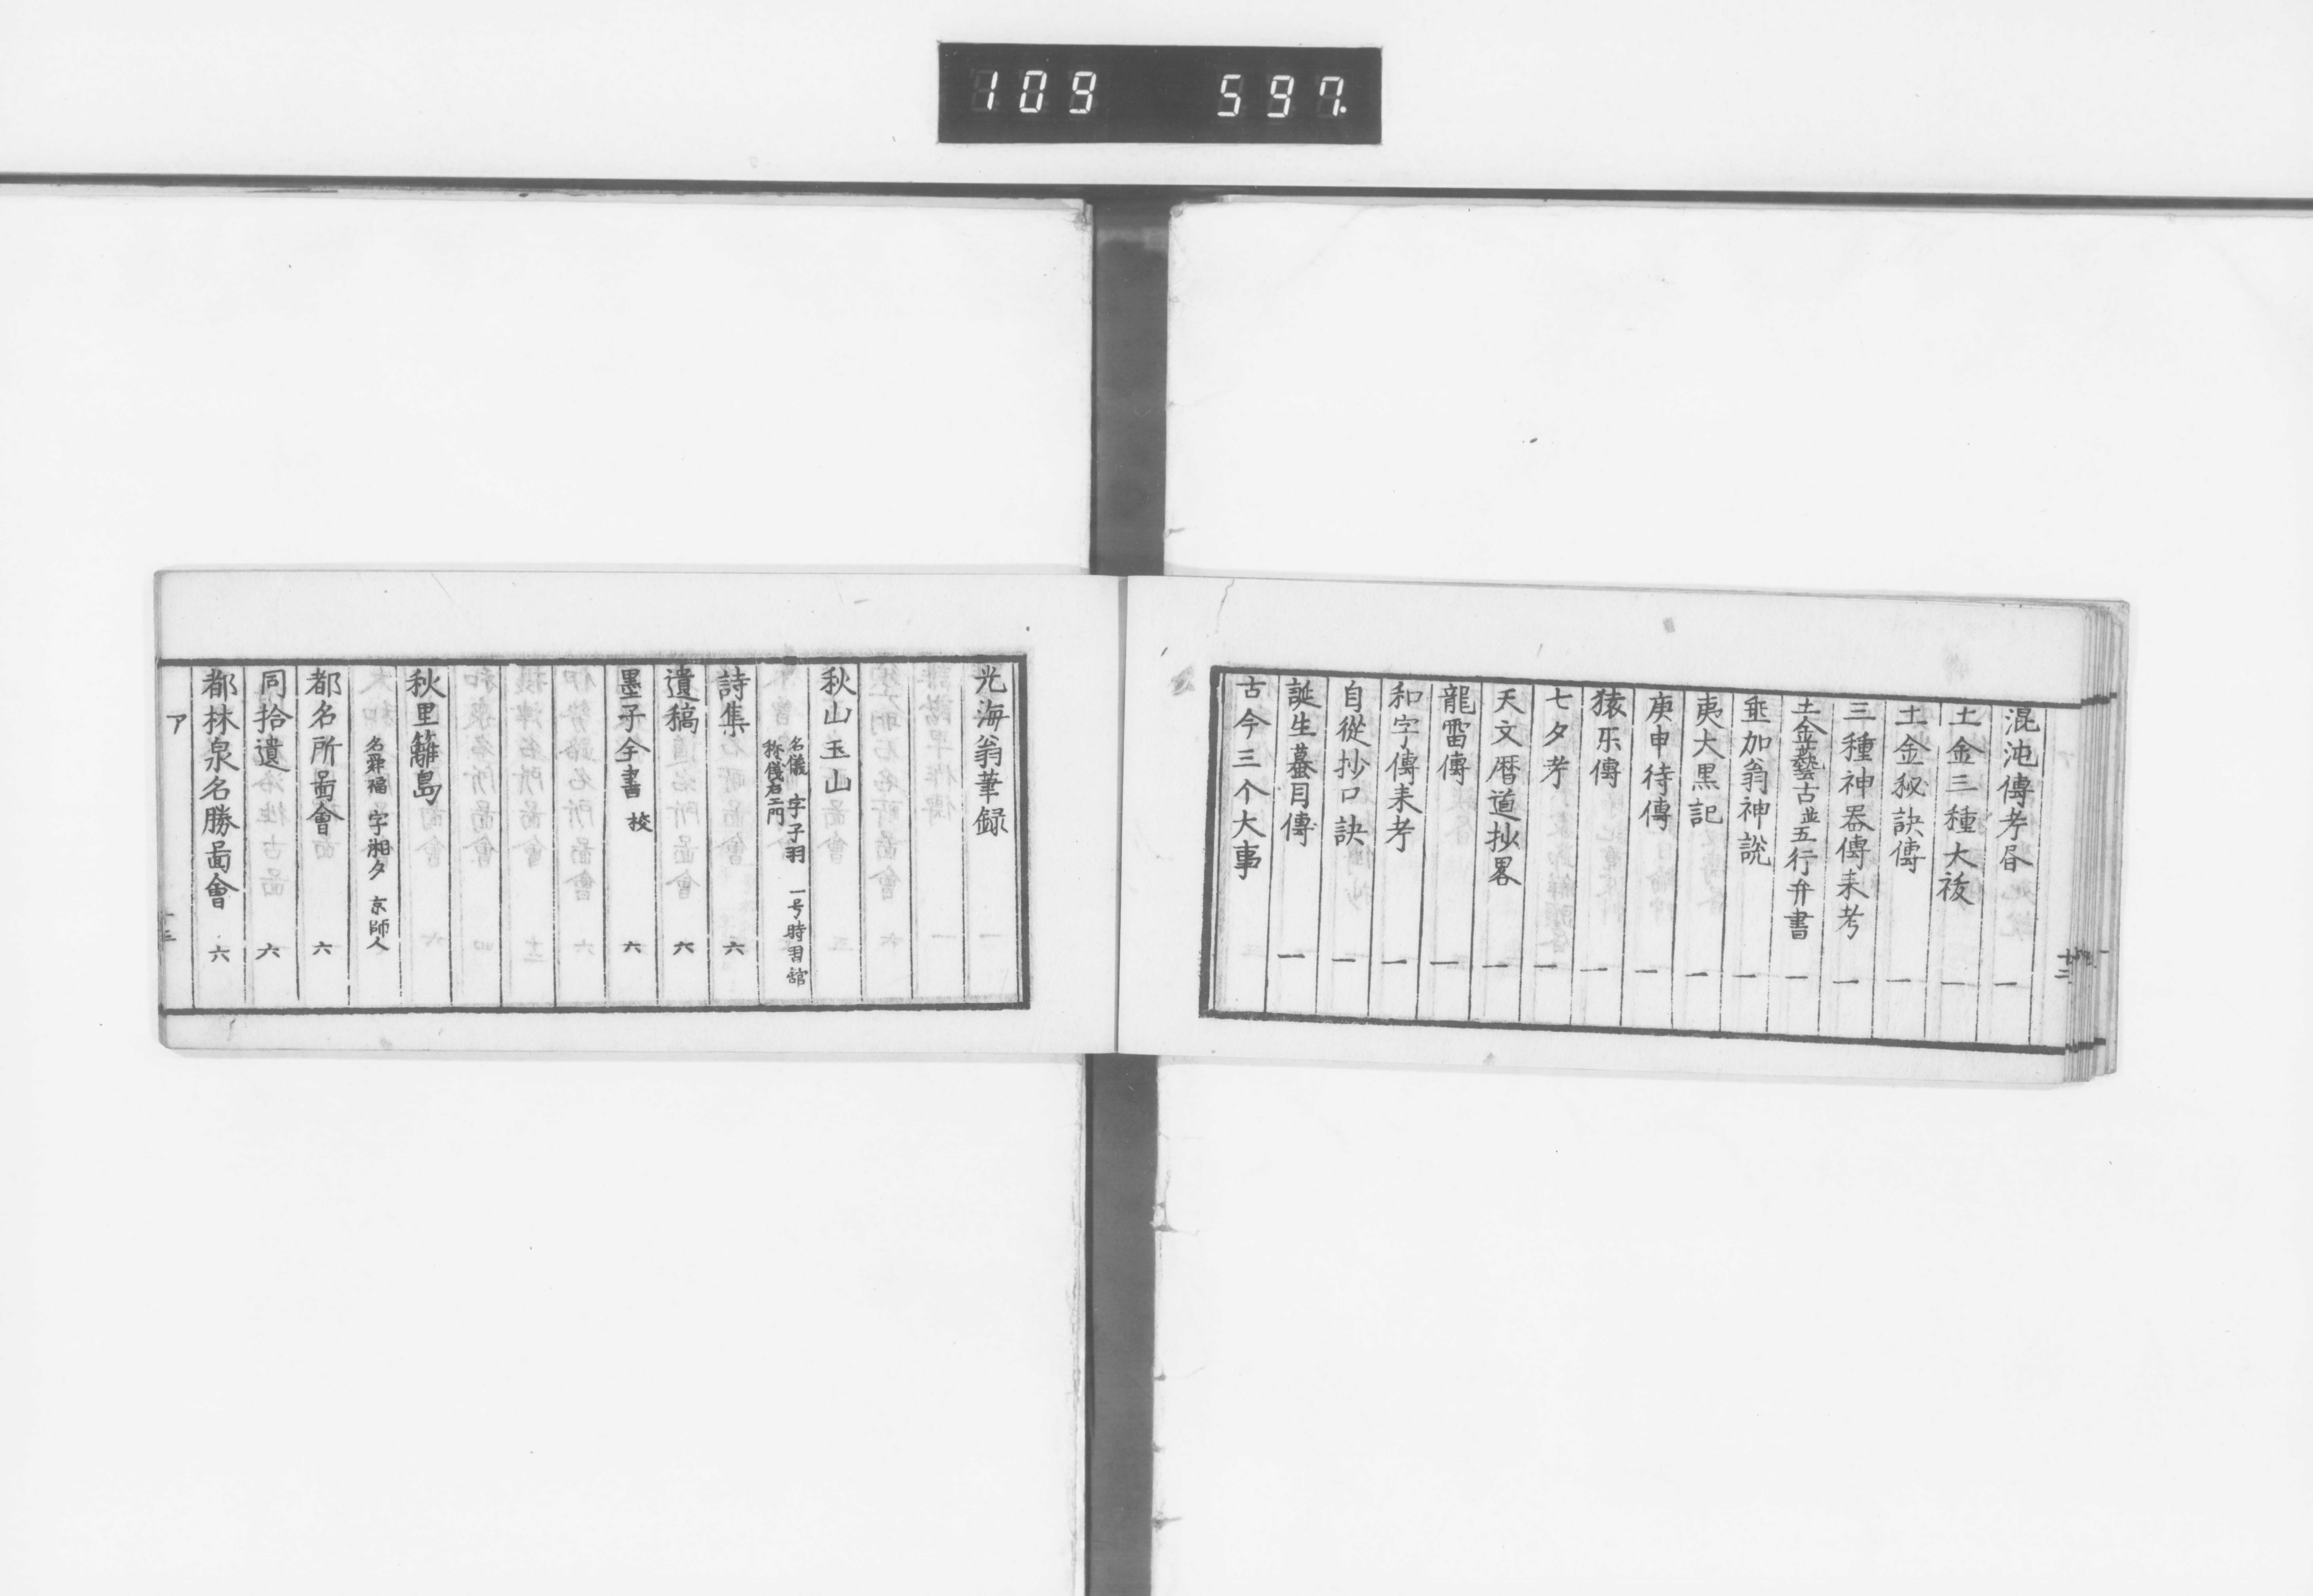 109 597.
混沌傳考昼 一
土金三種大祓 一
土金秘訣傳 一
三種神器傳来考 一
土金藝古並五行弁書 一
垂加翁神説 一
夷大黒記 一
庚申待傳 一
猿乐傳 一
七夕考 一
天文暦道抄畧 一
龍雷傳 一
和字傳来考 一
自從抄口訣 一
誕生蟇目傳 一
古今三个大事
光海翁筆録
秋山玉山
名儀 字子羽 一号時習舘
称儀右エ門
詩集 六
遺稿 六
墨子全書 校 六
秋里籬島
名舜福 字湘夕 京師人
都名所啚會 六
同拾遺 六
都林泉名勝啚會 六
ア